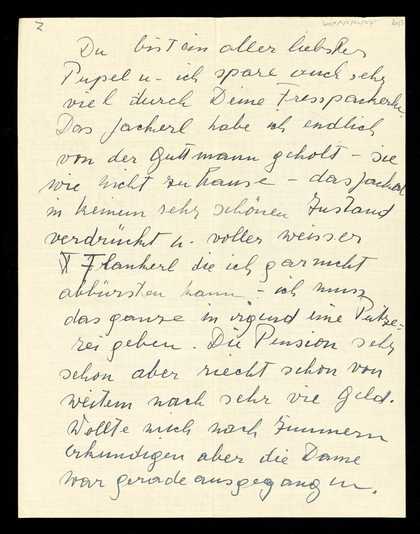 2
Du bist ein aller liebstes
Pupel u - ich spare auch sehr
viel durch Deine Fresspackerln.
Das Jackerl habe ich endlich
von der Guttmann geholt - sie
wie nicht zu hause - das Jackerl
in keinem sehr schönen Zustand
verdrückt u. voller weisser
Flankerl die ich garnicht
abbürsten kann - ich muss
das ganze in irgend eine Putze-
rei geben. Die Pension sehr
schön aber riecht schon von
weitem nach sehr vie Geld.
Wollte mich nach Zimmern
erkundigen aber die Dame
war gerade ausgegangen.